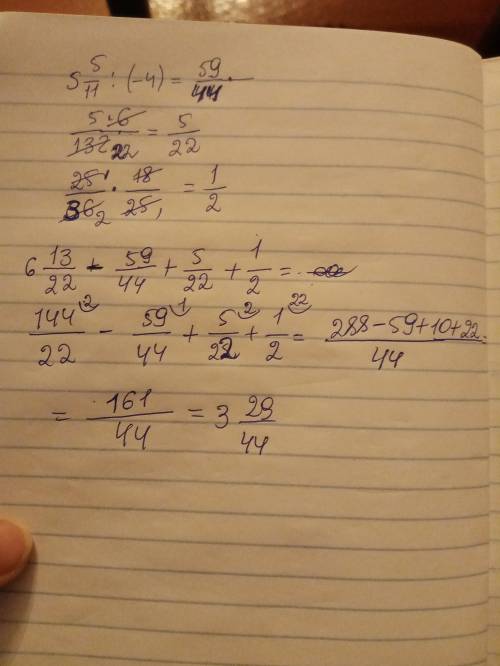 5 5/11 : (-4) = 59/44
5·6/132 22 = 5/22
25 1/36 2 · 18/25 1 = 1/2
6 13/22 - 59/44 + 5/22 + 1/2 =
144/22 (2 - 59/44 (1 + 5/22 (2 + 1/2 (22 = 288-59+10+22/44
= 161/44 = 3 29/44